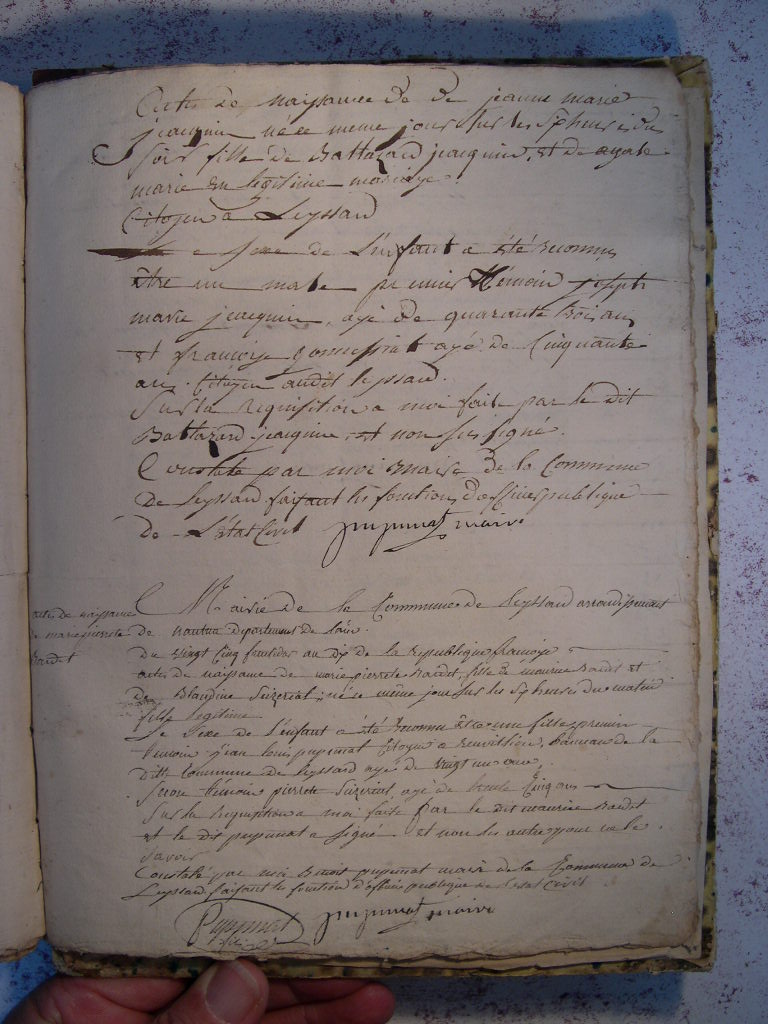 Acte de naissance de de jeanne marie
jeacquin née ce meme jour sur les sept heures du
soir fille de Baltazard jeacquin, et de
marie en legitime mariage.
Citoyen a Leyssard
Le sexe de L'enfant a été reconnu
être un male premier temoin joseph
marie jeacquin, agé de quarante trois ans
et francois agé de Cinquante
ans. Citoyen audit leyssard.
Sur la requisition a moi fait par le dit
Baltazard jeacquin, et non sus signé.
Constaté par moi maire de la Commune
De Leyssard faisant les fonctions d'officier publique
de L'état Civil pupunat maire
actes de naissance
de marie pierrete
Baudet
Mairie de la Commune de Leyssard arrondissement
de nantua departement de l'ain.
Du vingt Cinq fructidor an Dix de la republique françoise
actes de naissance de marie pierrete Baudet, fille de maurice Baudet et
De Blandine Suzeriat; née ce même jour sur les sept heures du matin
fille legitime
Le sexe de L'enfant a été reconnu être une fille premier
temoin jean louis pupunat Citoyen a , hameau de la
ditte Commune de Leyssard agé de vingt un ans,
Second temoin pierrete Suzeriat agé de trente Cinq ans
Sur la requisition a moi faite par le dit maurice Baudet
et le dit pupunat a signé et non les autres pour ne le
savoir
Constaté par moi Benoit pupunat maire de la Commune de
Leyssard faisant les fonction d'officier publique de l'etat Civil
Pupunat pupunat maire